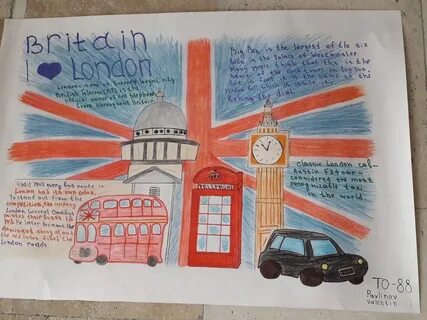 Britain
I London
London is one of Europe's largest city
British Telecom (BT) is the
official owner of red telephone
boxes throughout Britain
Big Ben is the largest of the six
bells in the Palace of Westminster.
Many more think that this is the
name of the clock tower in London,
in fact it is the name of the
which is inside it,
behind the dial.
Until 1907 every bus route in
London had its own color.
To stand out from the
competition, the company
London General Omnibus
painted their buses in
red. He later became the
dominant among all and
the red color filled the
London roads.
Classic London cab
Austin FX4 car
considered the most
recognizable taxi
in the world
TELEPHONE
TO-88
Pavlinov
Valentin